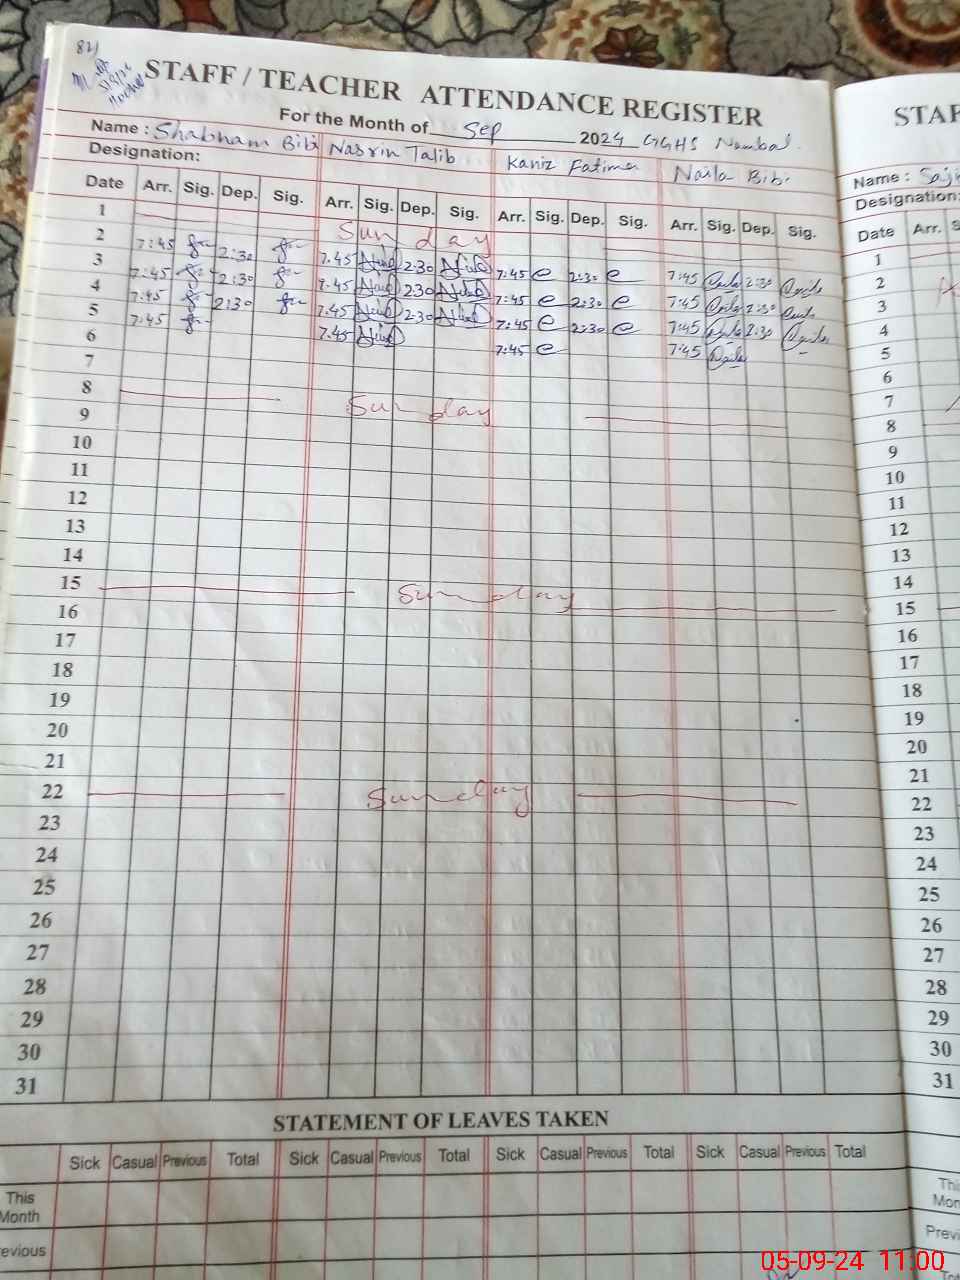 821
5/9/24
STAFF / TEACHER ATTENDANCE REGISTER
For the Month of Sep 2024 GGHS Nambal.
Name : Shabnam Bibi Nasrin Talib Kaniz Fatima Naila Bibi
Designation:
Date Arr. Sig. Dep. Sig. Arr. Sig. Dep. Sig. Arr. Sig. Dep. Sig. Arr. Sig. Dep. Sig.
1 Sunday
2 7:45 2:30 7.45 2:30 7:45 2:30 7:45 2:30
3 7:45 2:30 7.45 2:30 7:45 2:30 7:45 2:30
4 7:45 2:30 7.45 2:30 7:45 2:30 7:45 2:30
5 7:45 7.45 7:45 7:45
6
7
8 Sunday
9
10
11
12
13
14
15 Sunday
16
17
18
19
20
21
22 Sunday
23
24
25
26
27
28
29
30
31
STATEMENT OF LEAVES TAKEN
Sick Casual Previous Total Sick Casual Previous Total Sick Casual Previous Total Sick Casual Previous Total
This
Month
evious
STAF
Name : Saji
Designation:
Date Arr. S
1
2
3
4
5
6
7
8
9
10
11
12
13
14
15
16
17
18
19
20
21
22
23
24
25
26
27
28
29
30
31
Thi
Mon
Previ
05-09-24 11:00